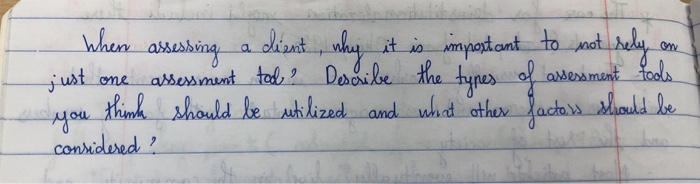 When assessing a client, why it is important to not rely on
just one assessment tool? Describe the types of assessment tools
you think should be utilized and what other factors should be
considered?